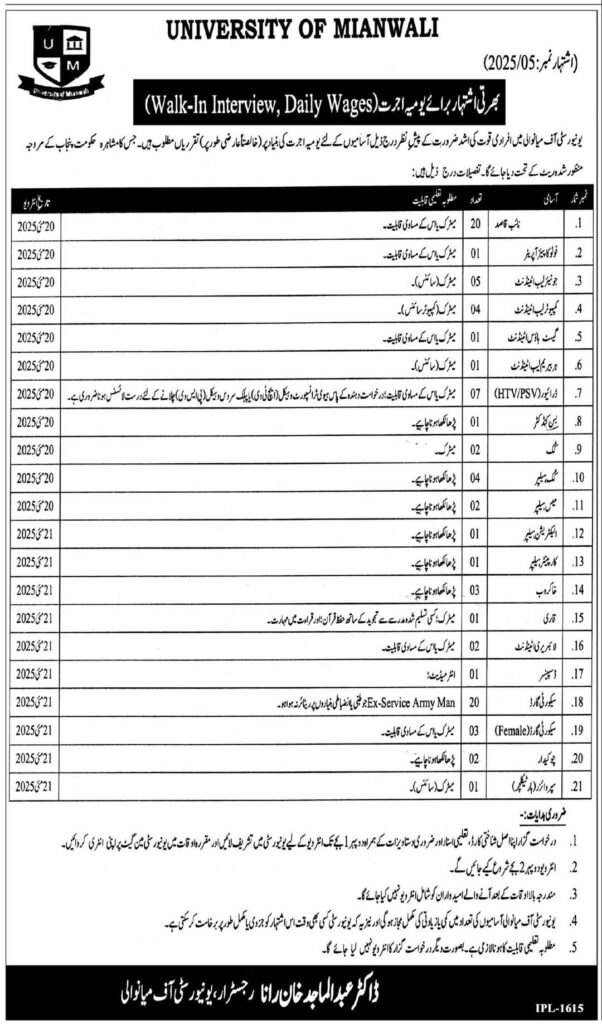 UNIVERSITY OF MIANWALI
U M
University of Mianwali
(اشتہار نمبر: 2025/05)
بھرتی اشتہار برائے یومیہ اجرت (Walk-In Interview, Daily Wages)
یونیورسٹی آف میانوالی میں افرادی قوت کی اشد ضرورت کے پیشِ نظر درج ذیل آسامیوں کے لئے یومیہ اجرت کی بنیاد پر (خالصتاً عارضی طور پر) تقرریاں مطلوب ہیں۔ جس کا مشاہرہ حکومت پنجاب کے مروجہ
منظور شدہ ریٹ کے تحت دیا جائے گا۔ تفصیلات درج ذیل ہیں:
نمبر شمار آسامی تعداد مطلوبہ تعلیمی قابلیت تاریخ انٹرویو
1. نائب قاصد 20 میٹرک یا اس کے مساوی قابلیت۔ 20 مئی 2025
2. فوٹو کاپیئر آپریٹر 01 میٹرک یا اس کے مساوی قابلیت۔ 20 مئی 2025
3. جونیئر لیب اٹینڈنٹ 05 میٹرک (سائنس)۔ 20 مئی 2025
4. کمپیوٹر لیب اٹینڈنٹ 04 میٹرک (کمپیوٹر سائنس)۔ 20 مئی 2025
5. گیسٹ ہاؤس اٹینڈنٹ 01 میٹرک یا اس کے مساوی قابلیت۔ 20 مئی 2025
6. ہربیریم لیب اٹینڈنٹ 01 میٹرک (سائنس)۔ 20 مئی 2025
7. ڈرائیور (HTV/PSV) 07 میٹرک یا اس کے مساوی قابلیت؛ درخواست دہندہ کے پاس ہیوی ٹرانسپورٹ وہیکل (ایچ ٹی وی) یا پبلک سروس وہیکل (پی ایس وی) چلانے کے لئے درست لائسنس ہونا ضروری ہے۔ 20 مئی 2025
8. بس کنڈکٹر 01 پڑھا لکھا ہونا چاہیے۔ 20 مئی 2025
9. کک 02 میٹرک۔ 20 مئی 2025
10. کک ہیلپر 04 پڑھا لکھا ہونا چاہیے۔ 20 مئی 2025
11. میس ہیلپر 02 پڑھا لکھا ہونا چاہیے۔ 20 مئی 2025
12. الیکٹریشن ہیلپر 01 پڑھا لکھا ہونا چاہیے۔ 21 مئی 2025
13. کارپینٹر ہیلپر 01 پڑھا لکھا ہونا چاہیے۔ 21 مئی 2025
14. خاکروب 03 پڑھا لکھا ہونا چاہیے۔ 21 مئی 2025
15. قاری 01 میٹرک؛ کسی تسلیم شدہ مدرسے سے تجوید کے ساتھ حفظ قرآن؛ اور قراءت میں مہارت۔ 21 مئی 2025
16. لائبریری اٹینڈنٹ 02 میٹرک یا اس کے مساوی قابلیت۔ 21 مئی 2025
17. ڈسپنسر 01 انٹرمیڈیٹ؛ 21 مئی 2025
18. سیکورٹی گارڈ 20 Ex-Service Army Man جو طبی یا انضباطی بنیادوں پر ریٹائر نہ ہوا ہو۔ 21 مئی 2025
19. سیکورٹی گارڈ (Female) 03 میٹرک یا اس کے مساوی قابلیت۔ 21 مئی 2025
20. چوکیدار 02 پڑھا لکھا ہونا چاہیے۔ 21 مئی 2025
21. سپروائزر (ہارٹیکلچر) 01 میٹرک (سائنس)۔ 21 مئی 2025
ضروری ہدایات:-
1. درخواست گزار اپنا اصل شناختی کارڈ، تعلیمی اسناد اور ضروری دستاویزات کے ہمراہ دوپہر 1 بجے تک انٹرویو کے لیے یونیورسٹی میں تشریف لائیں اور مقررہ اوقات میں یونیورسٹی مین گیٹ پر اپنی انٹری کروائیں۔
2. انٹرویو دوپہر 2 بجے شروع کیے جائیں گے۔
3. مندرجہ بالا اوقات کے بعد آنے والے امیدواران کو شامل انٹرویو نہیں کیا جائے گا۔
4. یونیورسٹی آف میانوالی آسامیوں کی تعداد میں کمی یا زیادتی کی مکمل مجاز ہوگی اور نیز یہ کہ یونیورسٹی کسی بھی وقت اس اشتہار کو جزوی یا مکمل طور پر برخاست کر سکتی ہے۔
5. مطلوبہ تعلیمی قابلیت کا ہونا لازمی ہے۔ بصورت دیگر درخواست گزار کا انٹرویو نہیں لیا جائے گا۔
ڈاکٹر عبدالماجد خان رانا رجسٹرار، یونیورسٹی آف میانوالی
IPL-1615